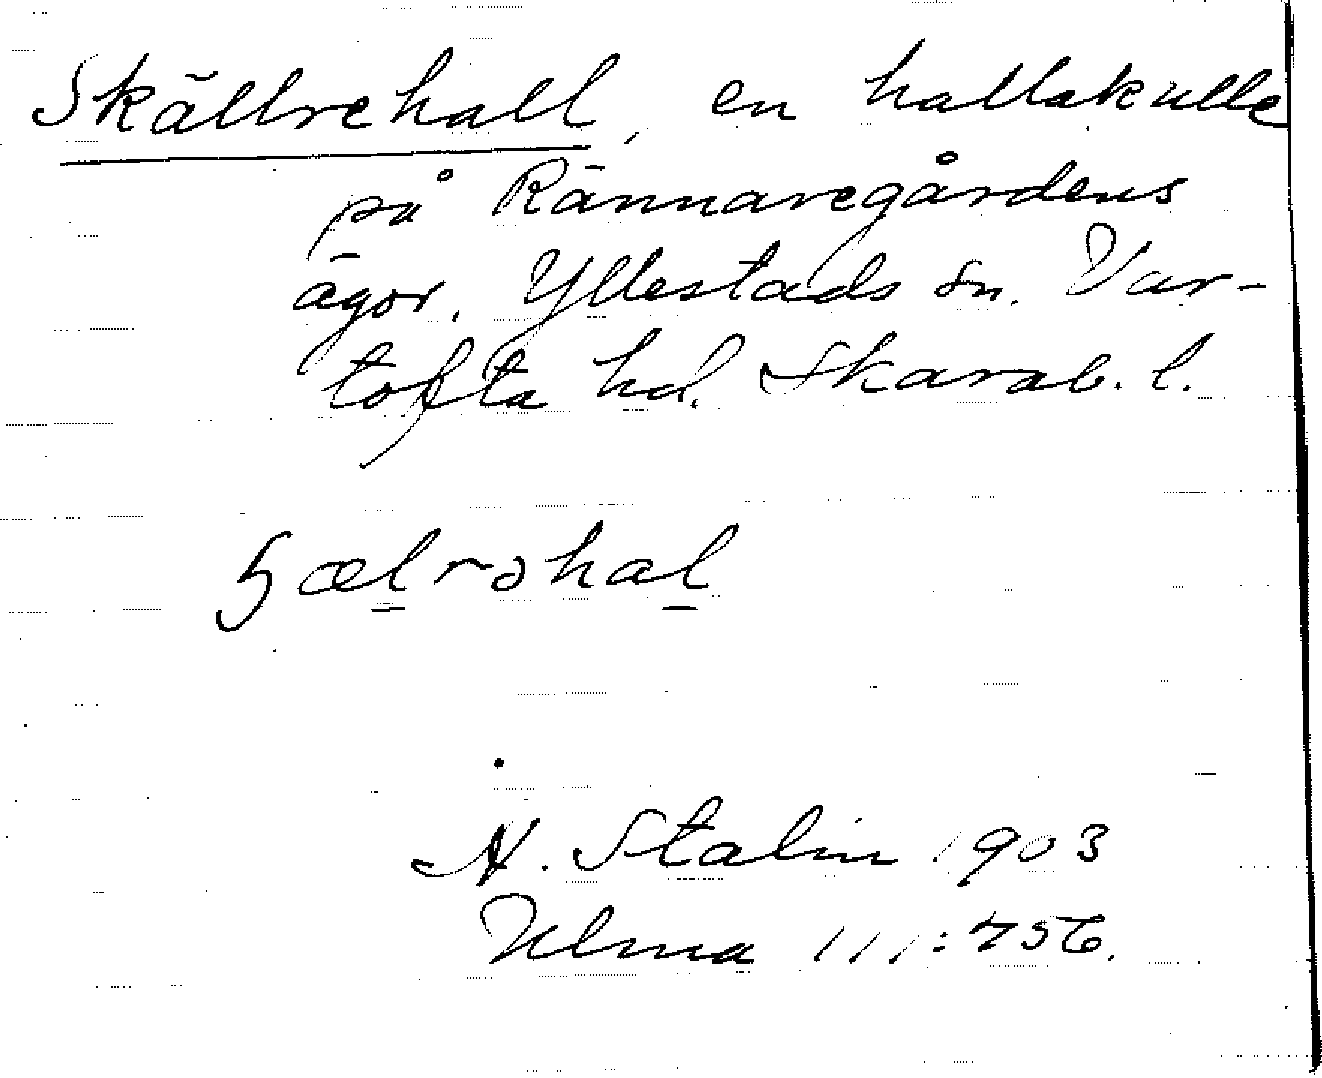 Skällrehall, en hallakulle
på Rännaregårdens
ägor. Yllestads sn. Var-
tofta hd. Skarab. l.
ɧælrəhal
A. Stalin 1903
Ulma 111:756.